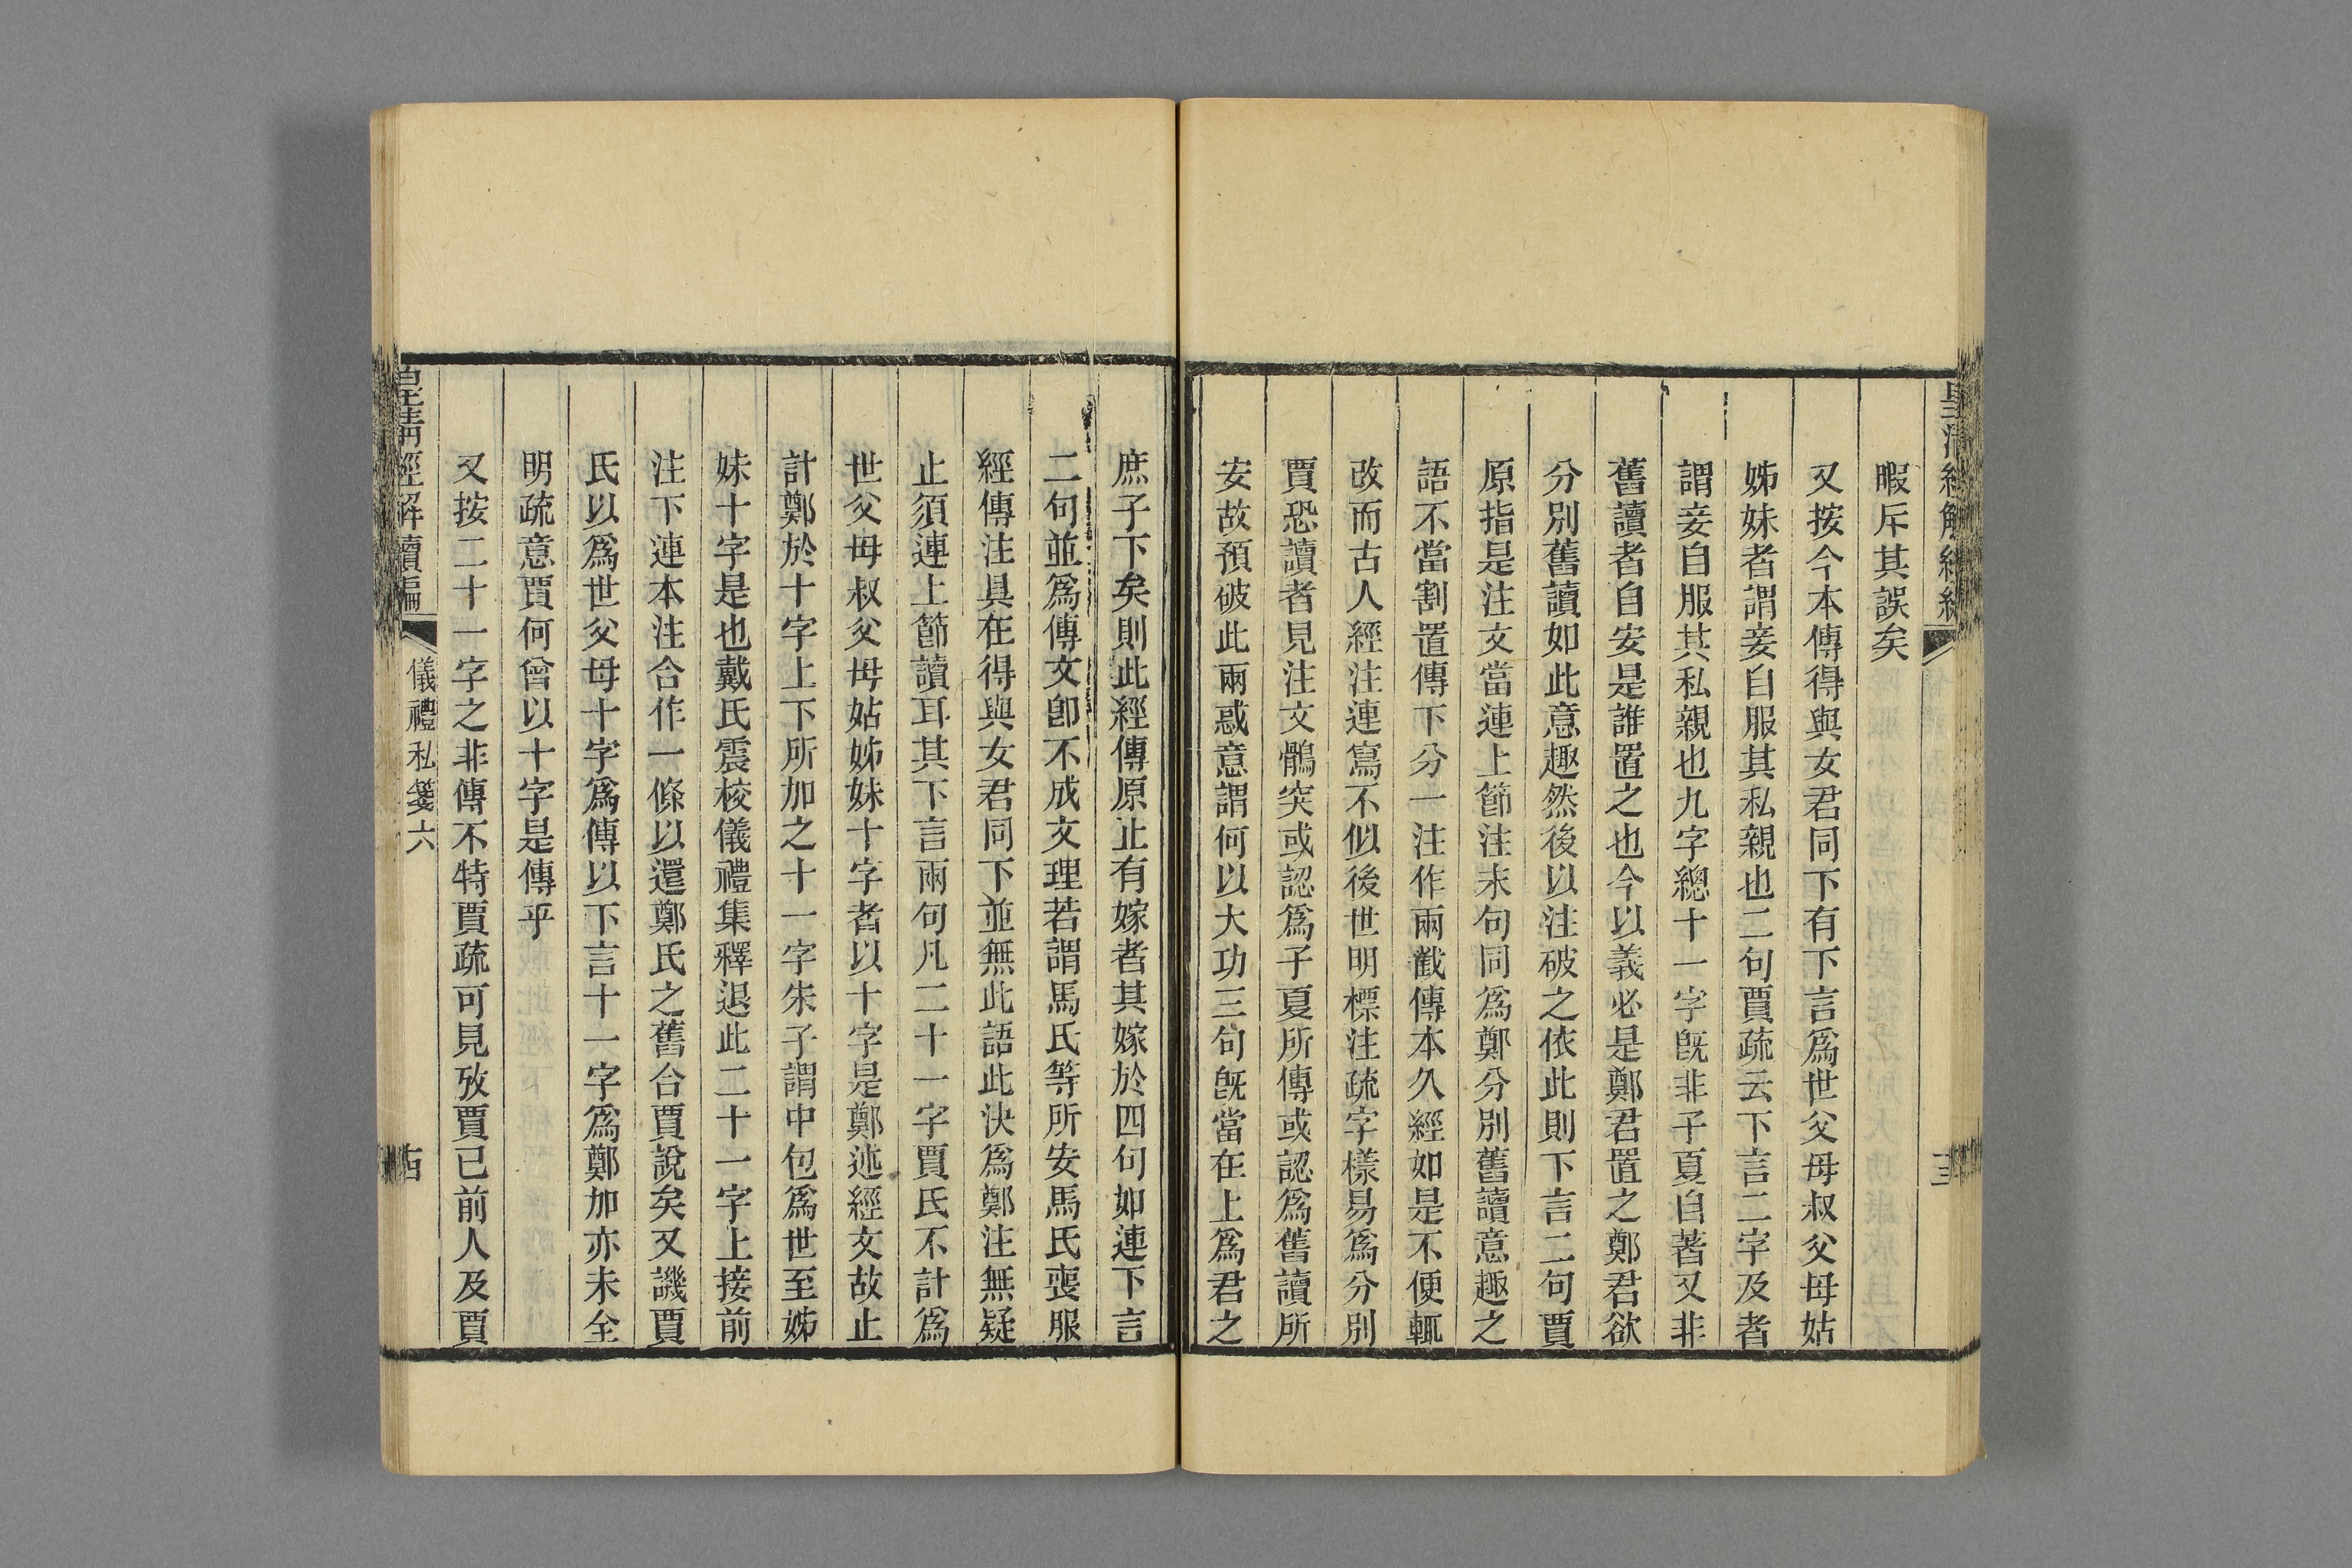 暇斥其誤矣
又按今本傳得與女君同下有下言爲世父母叔父母姑
姊妹者謂妾自服其私親也二句賈疏云下言二字及者
謂妾自服其私親也九字總十一字旣非子夏自著又非
舊讀者自安是誰置之也今以義必是鄭君置之鄭君欲
分別舊讀如此意趣然後以注破之依此則下言二句賈
原指是注文當連上節注末句同爲鄭分別舊讀意趣之
語不當割置傳下分一注作兩截傳本久經如是不便輒
改而古人經注連寫不似後世明標注疏字樣易爲分別
賈恐讀者見注文鶻突或認爲子夏所傳或認爲舊讀所
安故預破此兩惑意謂何以大功三句旣當在上爲君之
庶子下矣則此經傳原止有嫁者其嫁於四句如連下言
二句並爲傳文卽不成文理若謂馬氏等所安馬氏喪服
經傳注具在得與女君同下並無此語此決爲鄭注無疑
止須連上節讀耳其下言兩句凡二十一字賈氏不計爲
世父母叔父母姑姊妹十字者以十字是鄭述經文故止
計鄭於十字上下所加之十一字朱子謂中包爲世至姊
妹十字是也戴氏震校儀禮集釋退此二十一字上接前
注下連本注合作一條以還鄭氏之舊合賈說矣又譏賈
氏以爲世父母十字爲傳以下言十一字爲鄭加亦未全
明疏意賈何曾以十字是傳乎
又按二十一字之非傳不特賈疏可見攷賈已前人及賈
皇清經解續編 儀禮私箋六 古